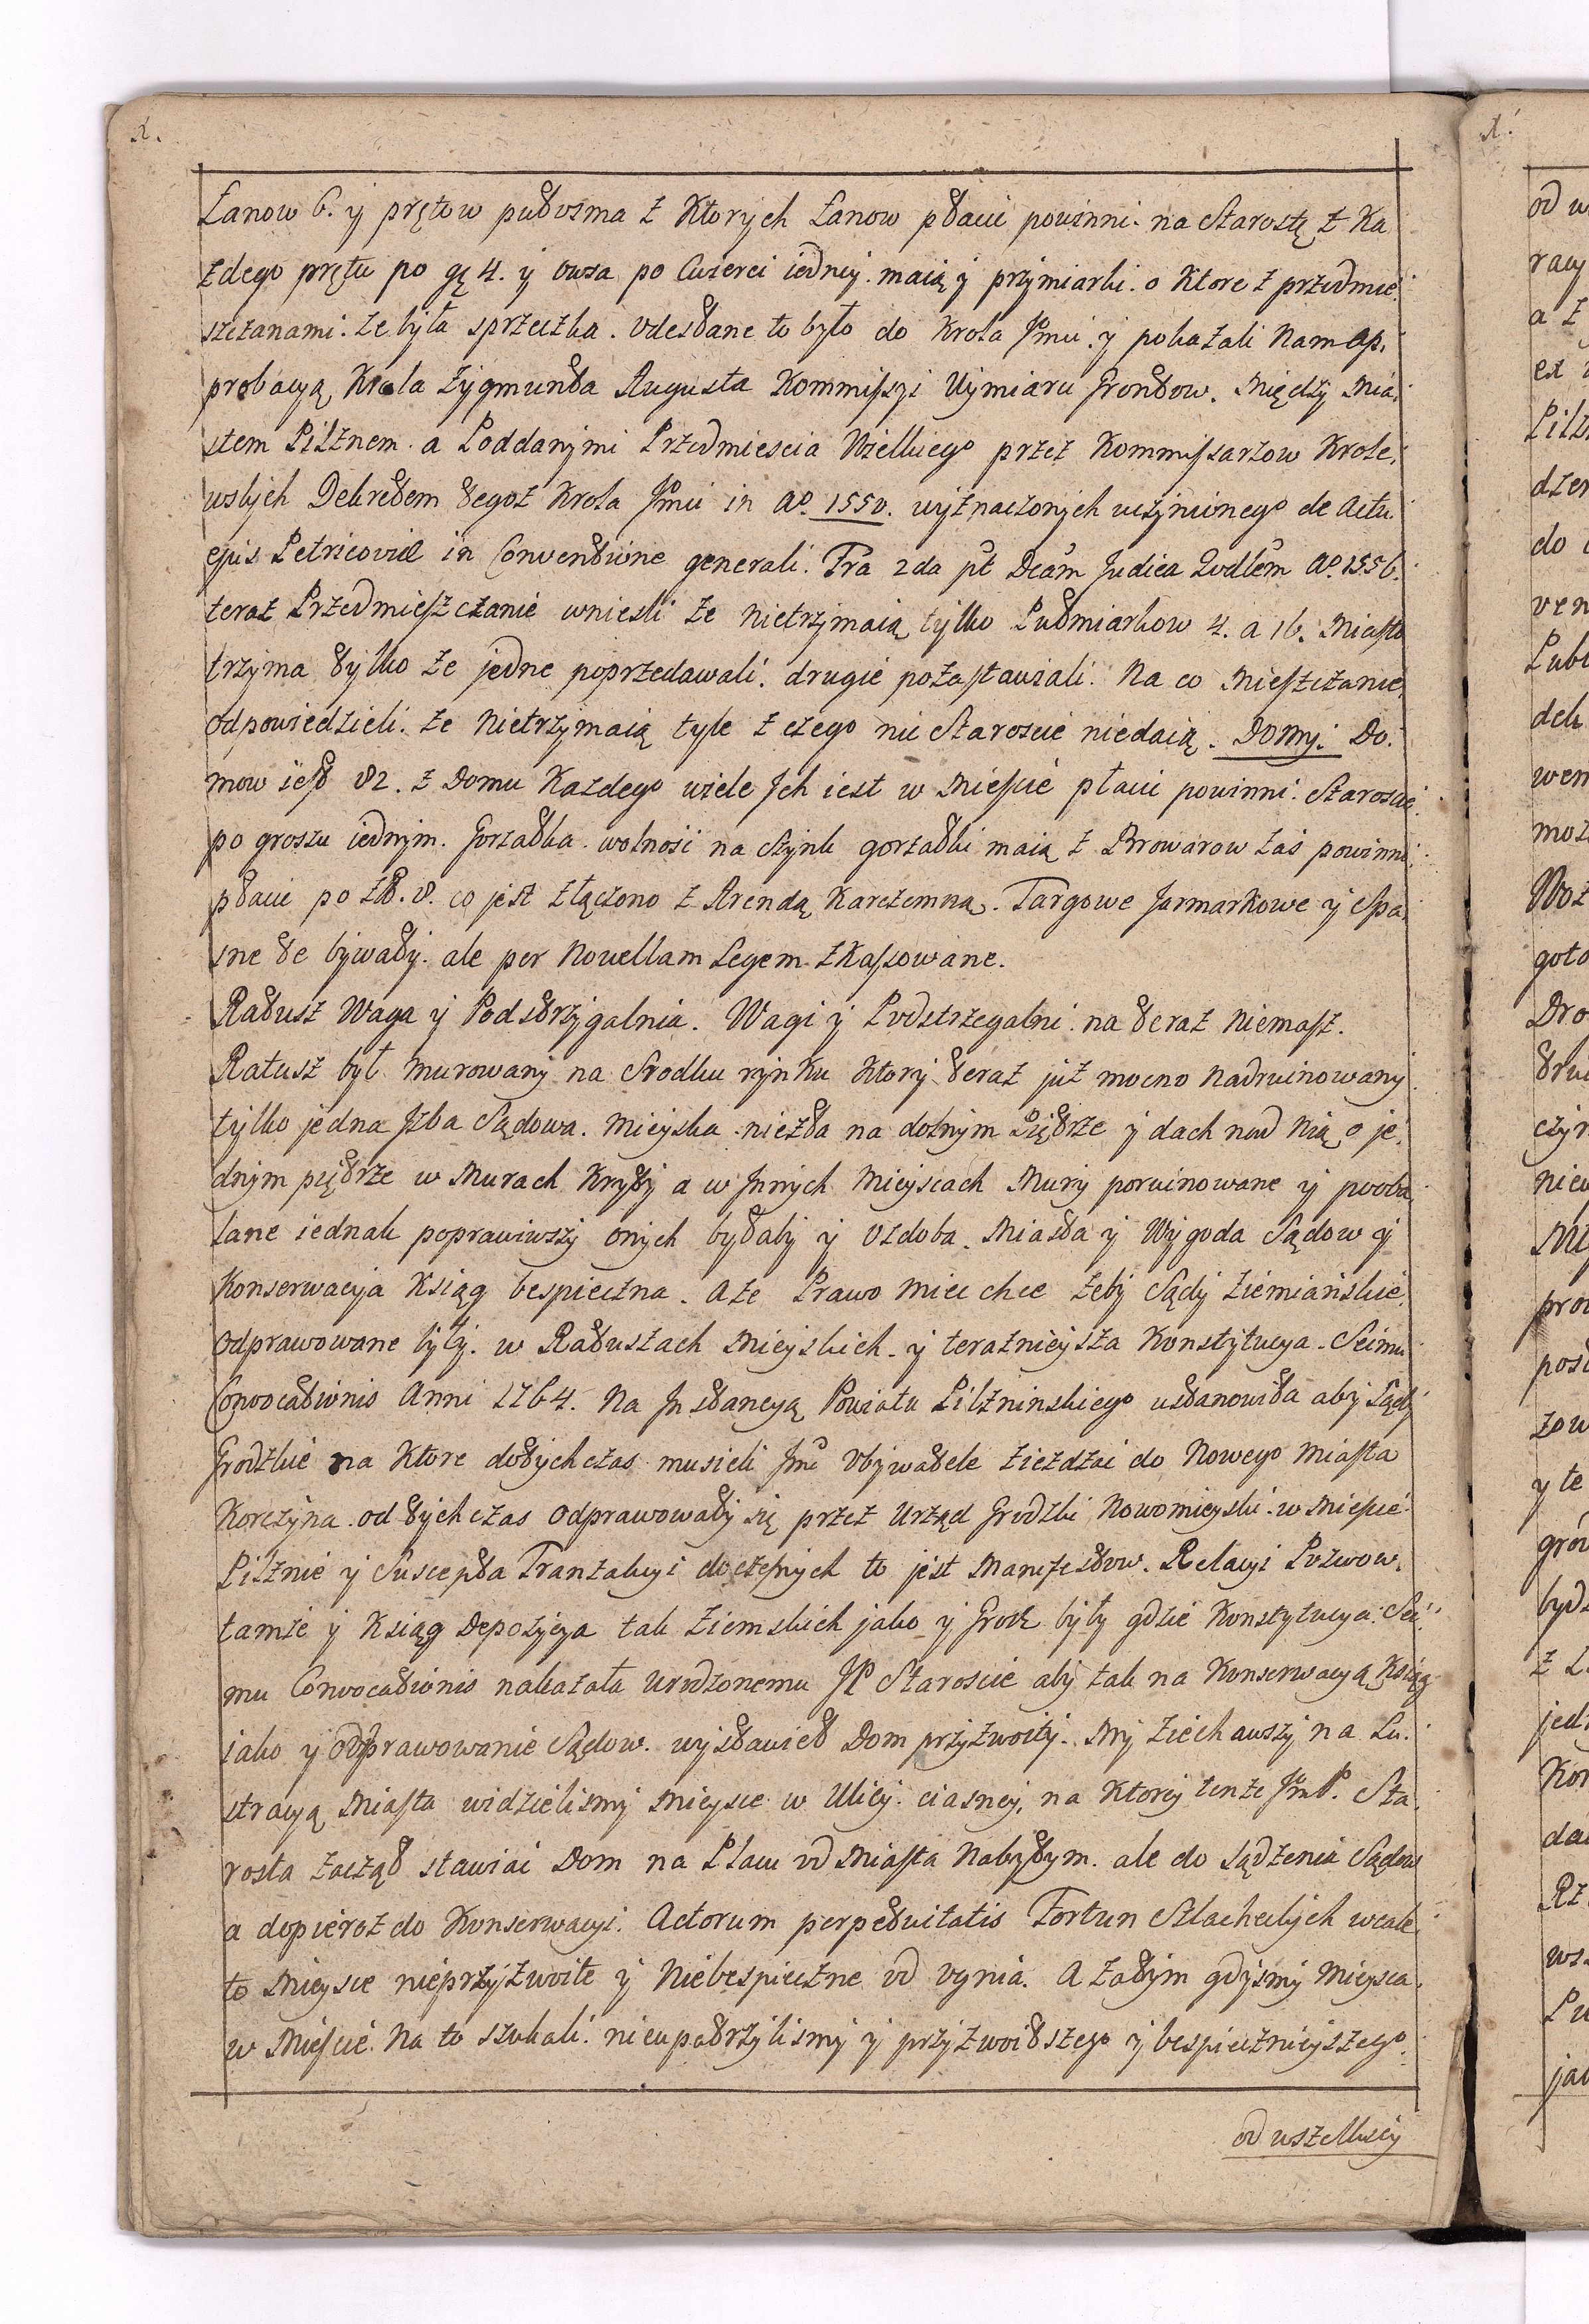 Łanow 6. y prętow pułosma z Ktorych Łanow płacic powinni. na Starostę z Ka
zdego prętu po gę 4. y owsa po Cwierci iedney. maią y przymiarki. o Ktore z przedmie.
szczanami. ze była sprzeczka. odesłane to było do Krola Jmci. y pokazali Nam ap.
probacyą Krola Zygmunta Augusta Kommissyi Wymiaru Grontow. Między Mia.
stem Pilznem. a Poddanymi Przedmiescia Wielkiego przez Kommissarzow Krole.
wskich Dekretem tegoż Krola Jmci in Ao. 1550. wyznaczonych uczynionego de Actu
ejus Petricoviæ in Conventione generali. Fra 2da pt Dcam Judica Ao. 1556.
teraz Przedmieszczanie wniesli ze Nietrzymaią tylko Pułmiarkow 4. a 16. Miasto
trzyma tylko ze jedne poprzedawali. drugie pozastawiali. Na co Mieszczanie
odpowiedzieli. ze Nietrzymaią tyle z czego nic Staroscie niedaią. Domy. Do.
mow iest 82. z Domu Kazdego wiele Jch iest w Miescie płacic powinni. Staroscie
po groszu iednym. Gorzałka. wolnosc na Szynk gorzałki maią z Browarow zaś powinni
płacic po zł. 8. co jest złączono z Arendą Karczemną. Targowe Jarmarkowe y Spa.
sne te bywały. ale per Novellam Legem zkassowane.
Ratusz Waga y Podstrzygalnia. Wagi y Podstrzegalni. na teraz niemasz.
Ratusz był murowany na Srodku rynku Ktory teraz już mocno nadruinowany
tylko jedna Jzba Sądowa. Mieyska. niezła na dolnym Piętrze y dach nad Nią o je.
dnym piętrze w Murach Kryty a w Jnnych Mieyscach Mury poruinowane y poroba
lane iednak poprawiwszy onych byłaby y Ozdoba. Miasta y Wygoda Sądow y
Konserwacyja Ksiąg bespieczna. a ze Prawo miec chce zeby Sądy Ziemiańskie.
odprawowane były. w Ratuszach Mieyskich. y teraznieysza Konstytucya. Seimu
Convocationis Anni 1764. Na Jnstancyą Powiatu Pilzninskiego ustanowiła aby Sądy
Grodzkie na Ktore dotychczas musieli Jmc Obywatele Zieżdżac do Nowego Miasta
Korczyna. od tych czas odprawowały się przez Urząd Grodzki Nowomieyski. w Miescie
Pilznie y Suscepta Tranzakcyi doczesnych to jest Manifestow. Relacyi Pozwow.
tamze y Ksiąg Depozycya tak Ziemskich jako y Grodz były gdzie Konstytucya. Sei.
mu Convocationis nakazała Urodzonemu JP Staroscie aby tak na Konserwacyą Ksiąg
iako y odprawowanie Sądow. wystawieł Dom przyzwoity. My Ziechawszy na Lu.
stracyą Miasta widzielismy Mieysce w Ulicy. ciasney. na Ktorey tenze JmP. Sta.
rosta zaczął stawiac Dom na Placu od Miasta Nabytym. ale do Sądzenia Sądow
a dopieroż do Konserwacyi. Actorum perpetuitatis Fortun Szlacheckych wcale
to Mieysce nieprzyzwoite y Niebespieczne od ognia. A zatym gdysmy Mieysca.
w Miescie. Na to szukali. nieupatrzylismy y przyzwoitszego y bespiecznieyszego.
od wszelkiey